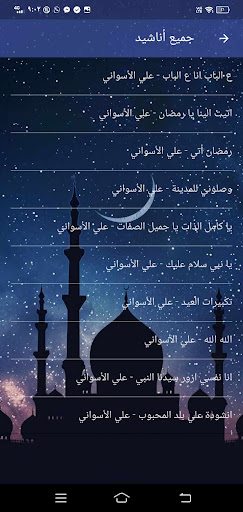 ٩:٠٢
جميع أناشيد
ع الباب انا ع الباب - علي الأسواني
اتيت الينا يا رمضان - علي الأسواني
رمضان أتي - علي الأسواني
وصلوني للمدينة - علي الأسواني
يا كامل الذات يا جميل الصفات - علي الأسواني
يا نبي سلام عليك - علي الأسواني
تكبيرات العيد - علي الأسواني
الله الله - علي الأسواني
انا نفسي ازور سيدنا النبي - علي الأسواني
انشودة علي بلد المحبوب - علي الأسواني